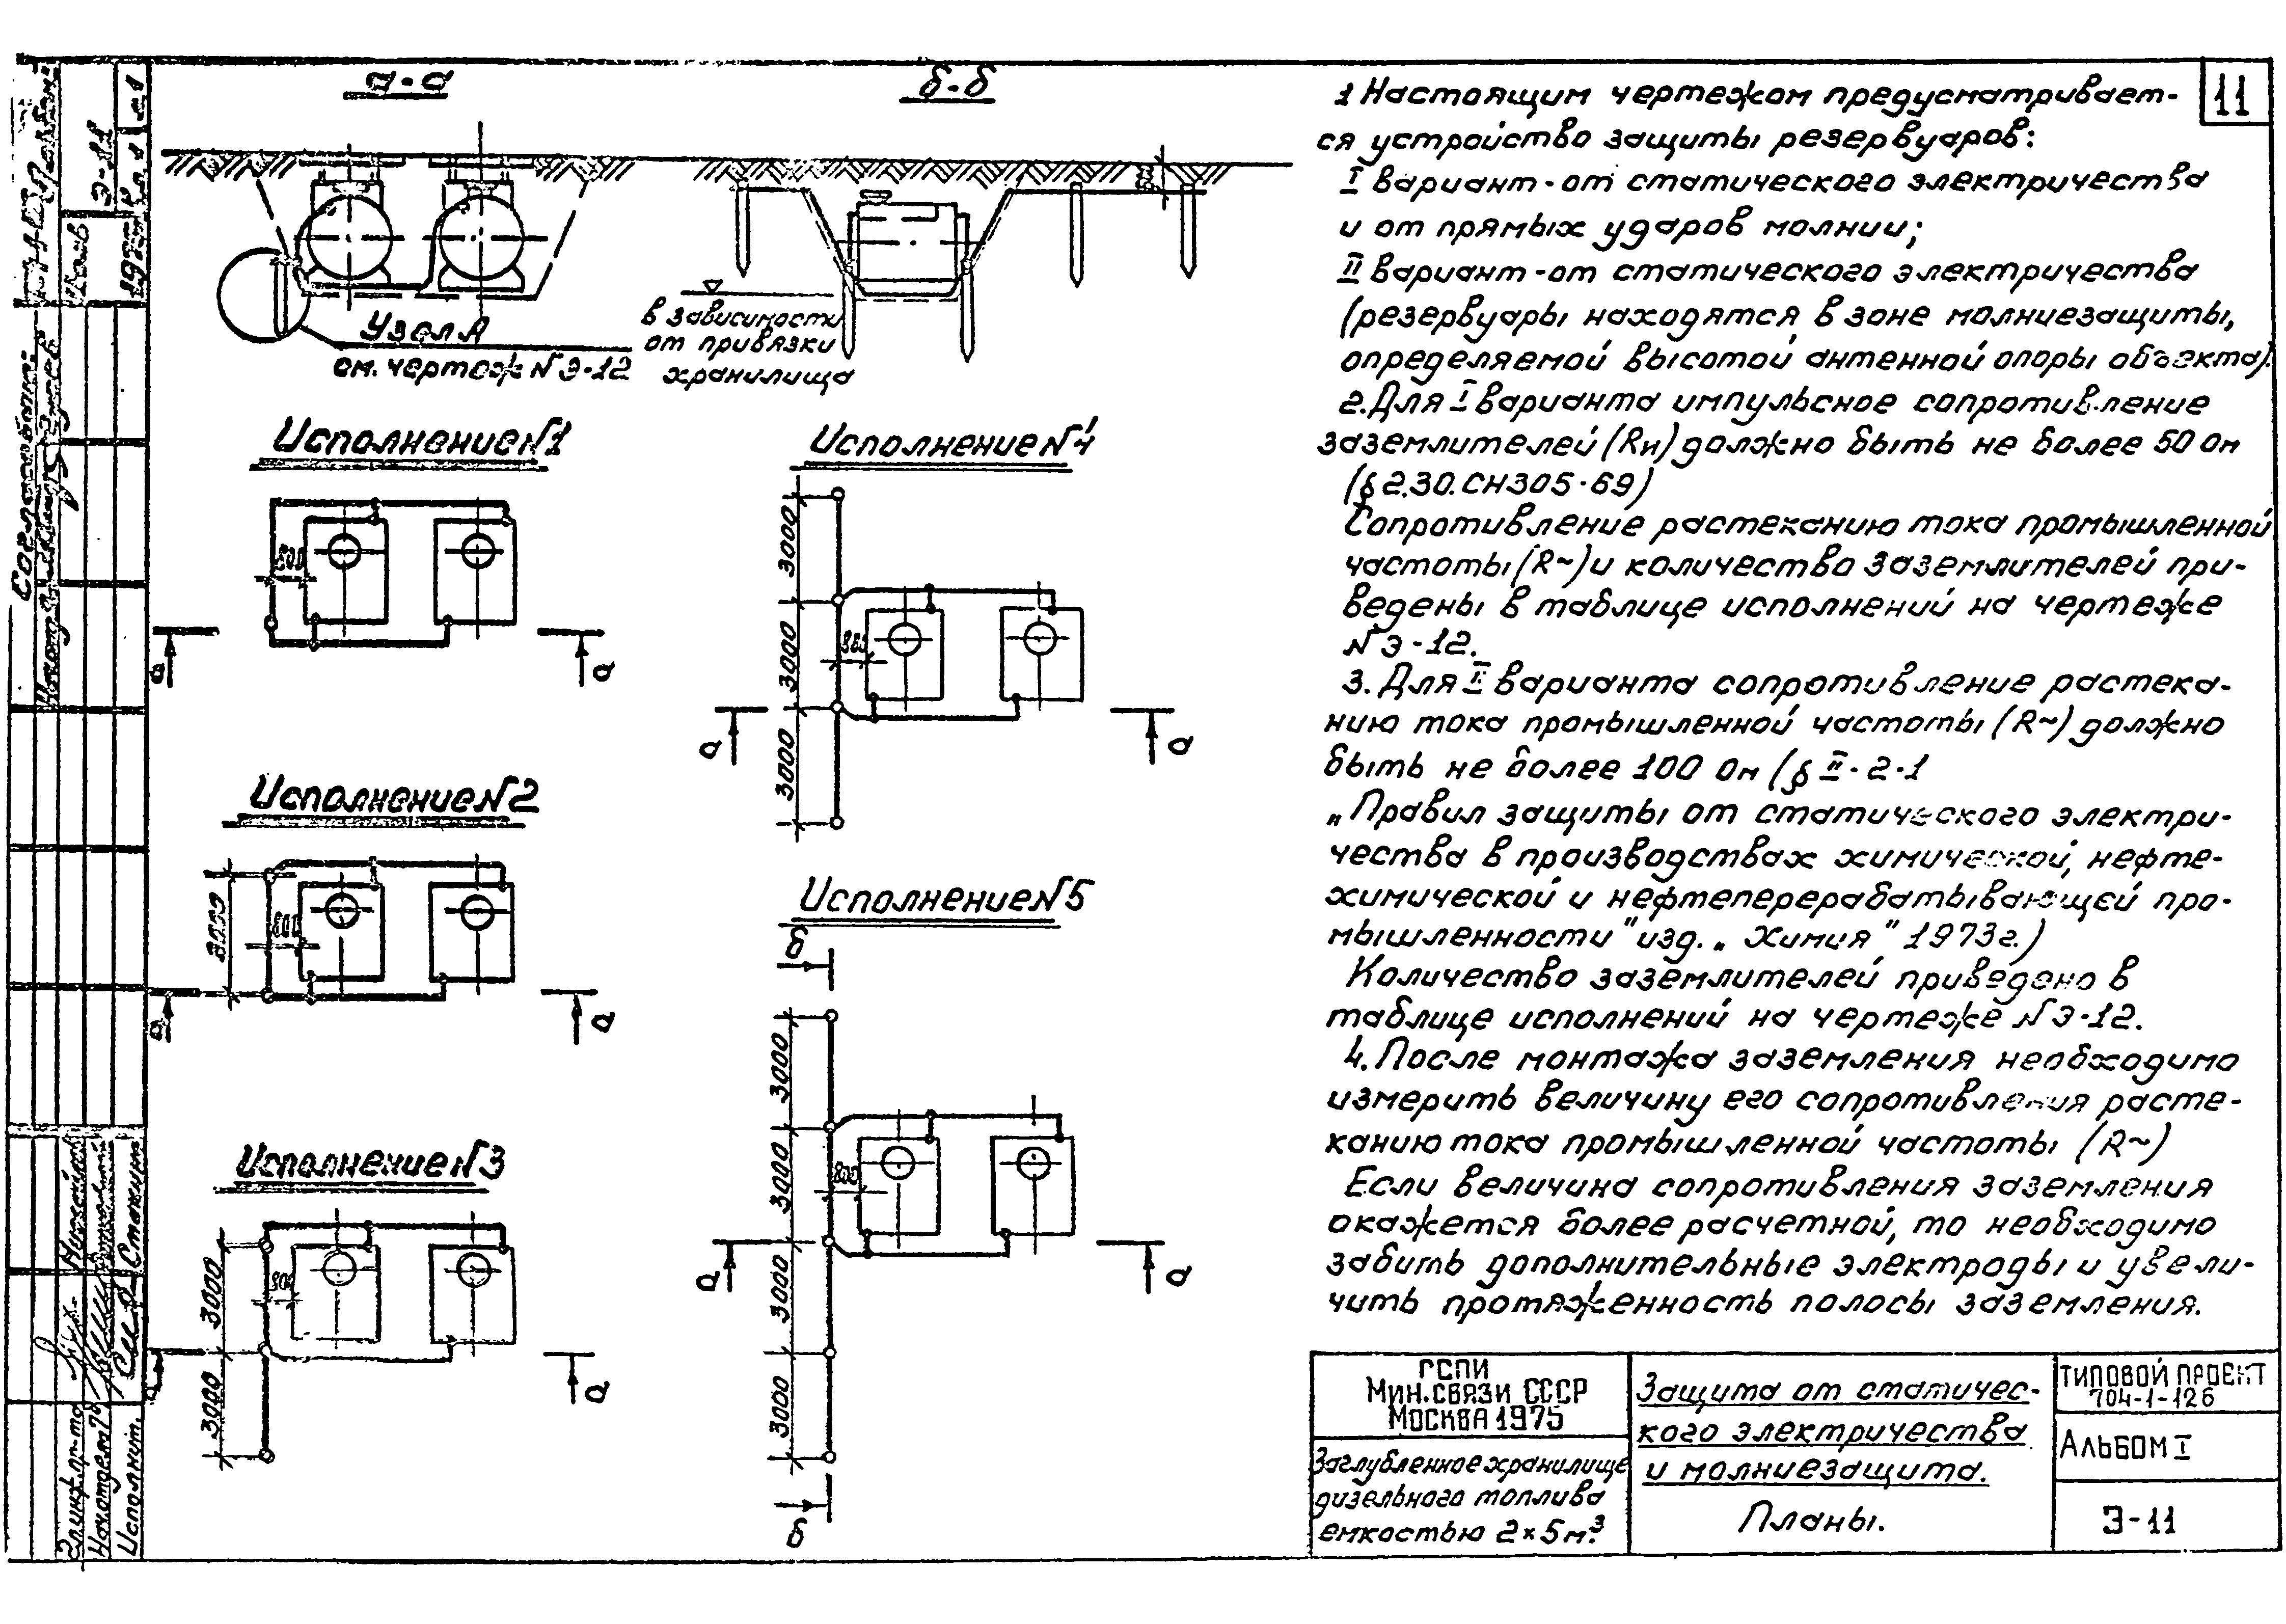 а-а
б-б
Узел А
см. чертеж N Э-12
в зависимости
от привязки
хранилища
Исполнение N1
800
а
а
Исполнение N2
3000
800
а
а
Исполнение N3
3000
3000
800
а
а
Исполнение N4
3000
3000
3000
800
а
а
Исполнение N5
б
3000
3000
3000
3000
800
а
а
б
11
1 Настоящим чертежом предусматривает-
ся устройство защиты резервуаров:
I вариант - от статического электричества
и от прямых ударов молнии;
II вариант - от статического электричества
(резервуары находятся в зоне молниезащиты,
определяемой высотой антенной опоры объекта).
2. Для I варианта импульсное сопротивление
заземлителей (Rи) должно быть не более 50 ом
(§ 2.30. СН305-69)
Сопротивление растеканию тока промышленной
частоты (R~) и количество заземлителей при-
ведены в таблице исполнений на чертеже
N Э-12.
3. Для II варианта сопротивление растека-
нию тока промышленной частоты (R~) должно
быть не более 100 Ом (§ II-2-1
„Правил защиты от статического электри-
чества в производствах химической, нефте-
химической и нефтеперерабатывающей про-
мышленности" изд. „Химия" 1973г.)
Количество заземлителей приведено в
таблице исполнений на чертеже N Э-12.
4. После монтажа заземления необходимо
измерить величину его сопротивления расте-
канию тока промышленной частоты (R~)
Если величина сопротивления заземления
окажется более расчетной, то необходимо
забить дополнительные электроды и увели-
чить протяженность полосы заземления.
ГСПИ
Мин. связи СССР
Москва 1975
Заглубленное хранилище
дизельного топлива
емкостью 2×5м³
Защита от статичес-
кого электричества
и молниезащита.
Планы.
Типовой проект
704-1-126
Альбом I
Э-11
Э-11
Исполнит.